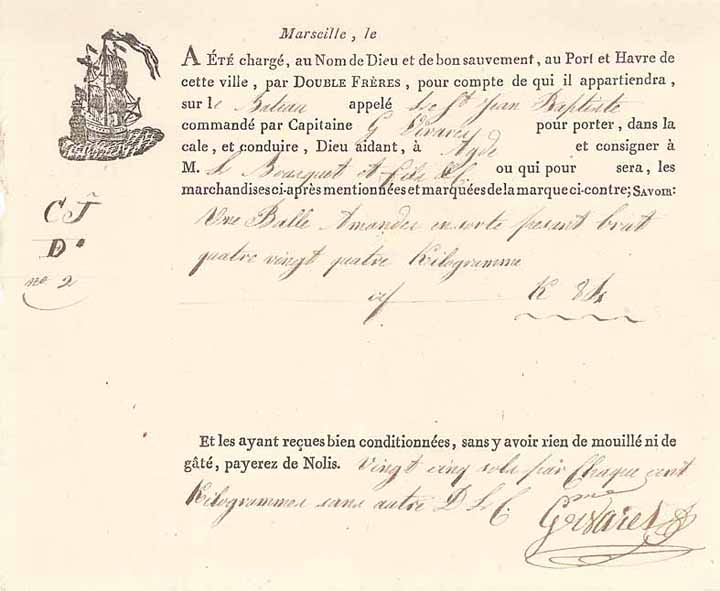 Marseille, le
A ÉTÉ chargé, au Nom de Dieu et de bon sauvement, au Port et Havre de
cette ville, par DOUBLE FRÈRES, pour compte de qui il appartiendra,
sur le Bateau appelé Le St Jean Baptiste
commandé par Capitaine G pour porter, dans la
cale, et conduire, Dieu aidant, à Agde et consigner à
M. L Bousquet et fils ou qui pour sera, les
marchandises ci-après mentionnées et marquées de la marque ci-contre; SAVOIR:
CJ
D
no 2
Une Balle Amandes en sorte pesant brut
quatre vingt quatre Kilogramme
K 84
Et les ayant reçues bien conditionnées, sans y avoir rien de mouillé ni de
gâté, payerez de Nolis. Vingt cinq sols par Chaque cent
Kilogrammes sans autre